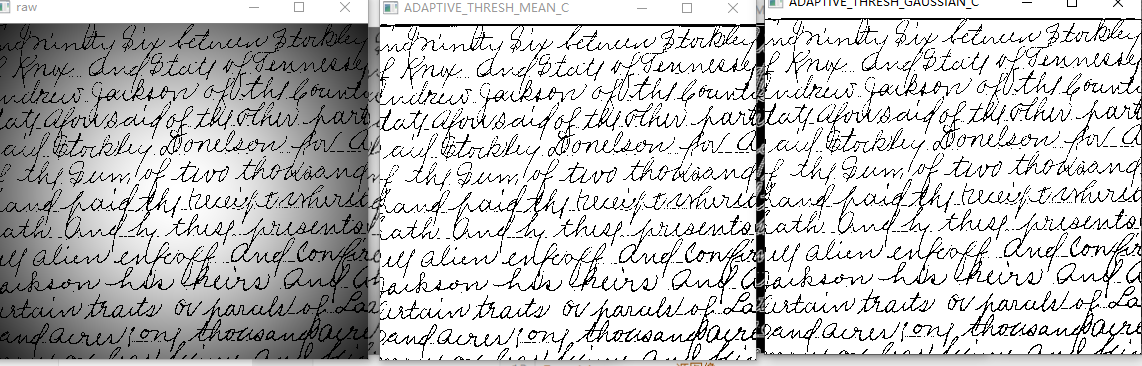 raw
ADAPTIVE_THRESH_MEAN_C
ADAPTIVE_THRESH_GAUSSIAN_C
ind ninety Six between Stockley
f Knox And State of Tennessee
ndrew Jackson of the Count
tate aforesaid of the other part
aid Stockley Donelson for A
f the Sum of two thousand
hand paid the receipt whereo
ath And by these presents
ell alien enfeoff And Confir
Jackson his heirs And A
ertain traits or parcels of La
and acres, one thousand acre
ind ninety Six between Stockley
f Knox And State of Tennessee
ndrew Jackson of the Count
tate aforesaid of the other part
aid Stockley Donelson for A
f the Sum of two thousand
hand paid the receipt whereo
ath And by these presents
ell alien enfeoff And Confir
Jackson his heirs And A
ertain traits or parcels of La
and acres, one thousand acre
ind ninety Six between Stockley
f Knox And State of Tennessee
ndrew Jackson of the Count
tate aforesaid of the other part
aid Stockley Donelson for A
f the Sum of two thousand
hand paid the receipt whereo
ath And by these presents
ell alien enfeoff And Confir
Jackson his heirs And A
ertain traits or parcels of La
and acres, one thousand acre